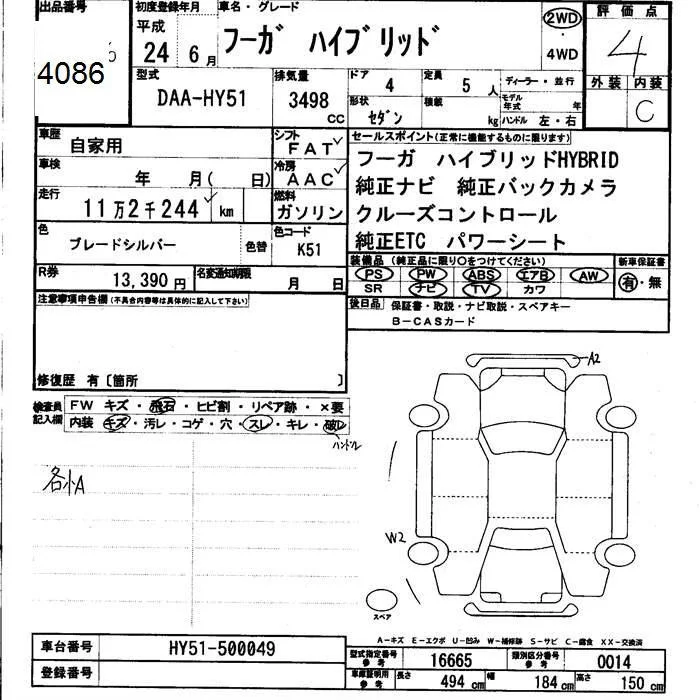 出品番号 初度登録年月 車名・グレード 評価点
4086 平成 24 6月 フーガ ハイブリッド 2WD・4WD 4
型式 DAA-HY51 排気量 3498 cc ドア 4 定員 5人 ディーラー・並行 外装 内装 C
形状 セダン 積載 kg モデル年式 年 ハンドル 左・右
車歴 自家用 シフト FAT セールスポイント(正常に機能するものに限ります)
車検 年 月( 日) 冷房 AAC フーガ ハイブリッドHYBRID
走行 11万2千244 km 燃料 ガソリン 純正ナビ 純正バックカメラ
色 ブレードシルバー 色替 色コード K51 クルーズコントロール
純正ETC パワーシート
R券 13,390円 名変通知期限 月 日 装備品(純正品に限り○をつけてください) 新車保証書
PS PW ABS エアB AW 有・無
SR ナビ TV カワ
注意事項申告欄(不具合内容等は具体的に記入して下さい) 後日品 保証書・取説・ナビ取説・スペアキー
B-CASカード
修復歴 有〔箇所 〕
検査員記入欄 FW キズ・飛石・ヒビ割・リペア跡・×要
内装 キズ・汚レ・コゲ・穴・スレ・キレ・破レ
ハンドル
A2
各小A
W2
スペア
A-キズ E-エクボ U-凹み W-補修跡 S-サビ C-腐食 XX-交換済
車台番号 HY51-500049 型式指定番号 参考 16665 類別区分番号 参考 0014
登録番号 車庫証明用 参考 長さ 494cm 幅 184cm 高さ 150cm